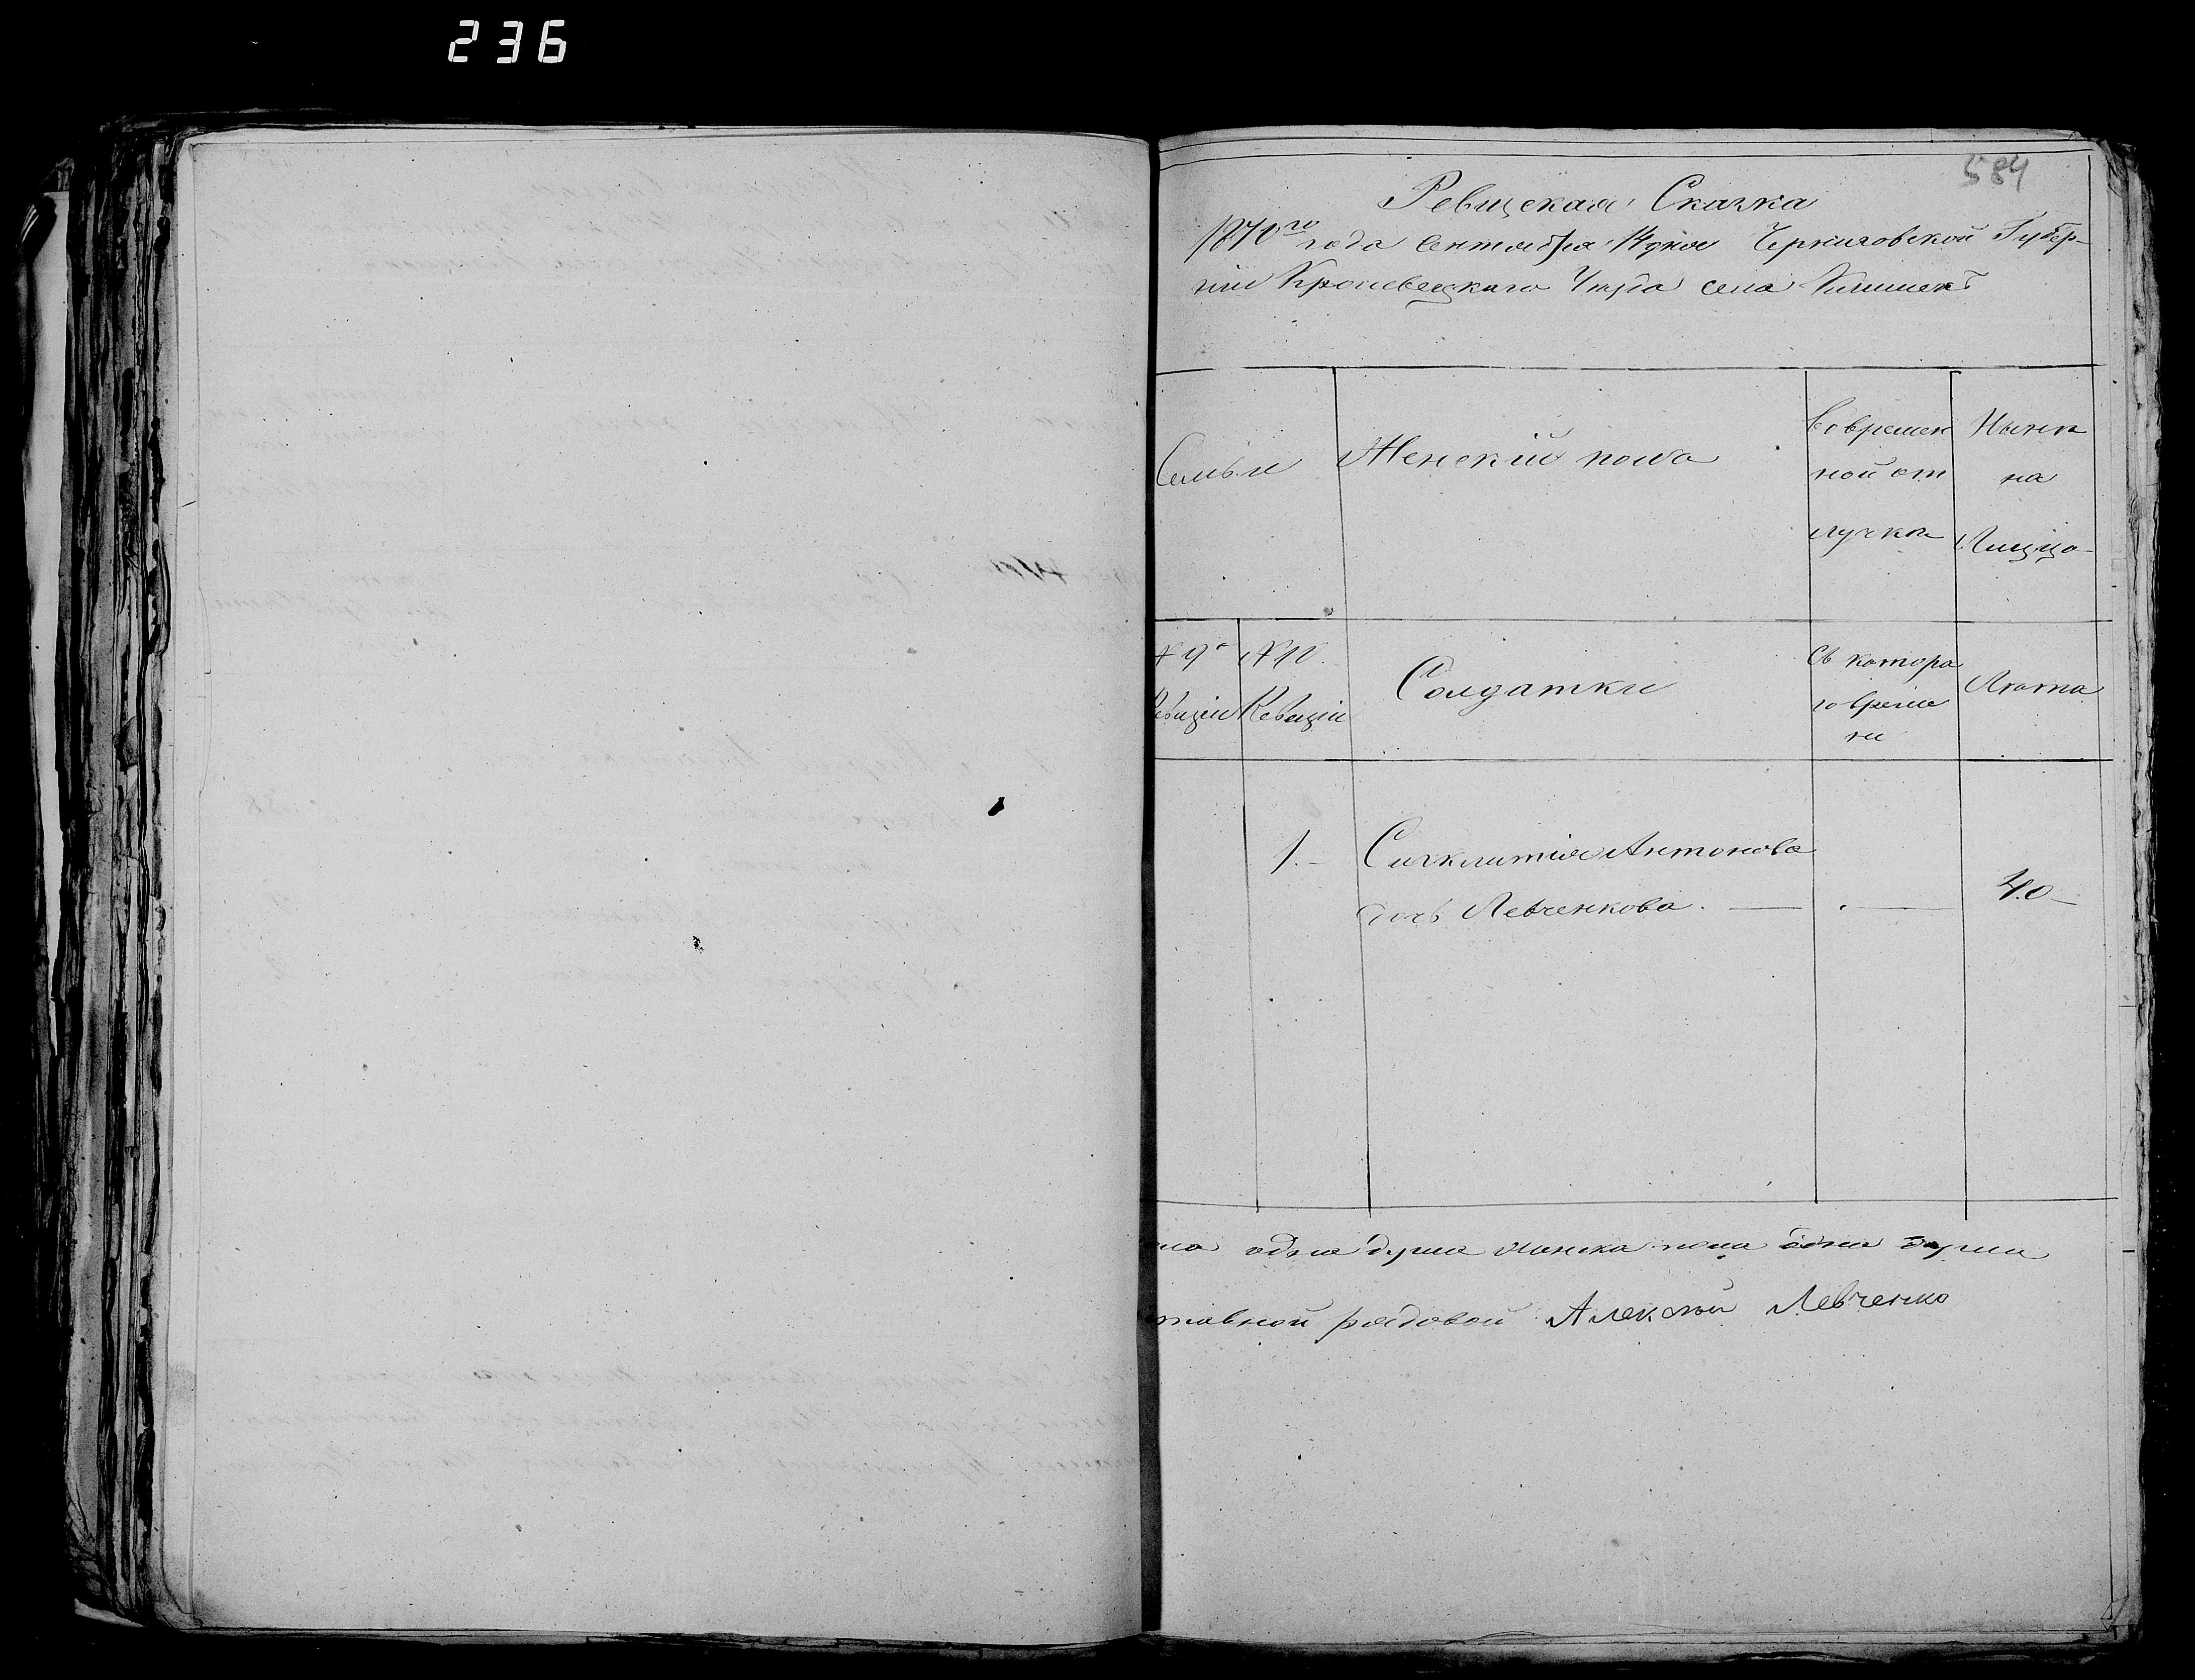 236
584
Ревизская Сказка
1870го года Сентября 14 дня Черниговской Губер-
нии Кролевецкаго Уезда села
Семьи
Женский пола
Во времен
ной от
лучке
Ныне
на
Лицо
№ 9й
Ревизии
№ 10.
Ревизіи
Солдатки
Съ которо
го време
ни
Лета
1.–
Сигклития Антонова
дочь Левченкова. —
. —
40–
одна душа женска пола одна душа
ставной рядовой Алексей Левченко